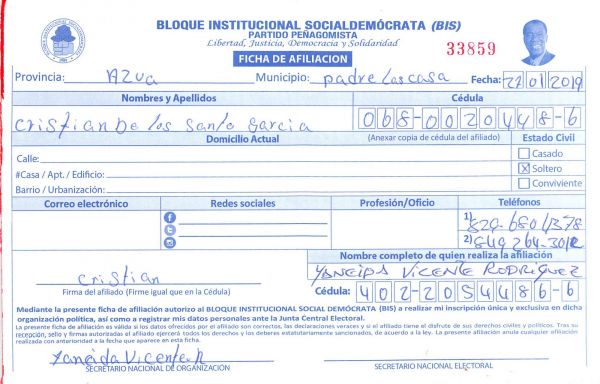 BLOQUE INSTITUCIONAL SOCIALDEMÓCRATA (BIS)
PARTIDO PEÑAGOMISTA
Libertad, Justicia, Democracia y Solidaridad
33859
FICHA DE AFILIACION
Provincia: AZUA Municipio: padre Las casa Fecha: 22/01/2019
Nombres y Apellidos Cédula
Cristian De los Santo Garcia 068-0020448-6
Domicilio Actual (Anexar copia de cédula del afiliado) Estado Civil
Calle: Casado
#Casa / Apt. / Edificio: X Soltero
Barrio / Urbanización: Conviviente
Correo electrónico Redes sociales Profesión/Oficio Teléfonos
1) 829-680-1378
2) 849 264-3012
Nombre completo de quien realiza la afiliación
Cristian YANEIDA VICENTE RODRIGUEZ
Firma del afiliado (Firme igual que en la Cédula) Cédula: 402-2054486-6
Mediante la presente ficha de afiliación autorizo al BLOQUE INSTITUCIONAL SOCIAL DEMÓCRATA (BIS) a realizar mi inscripción única y exclusiva en dicha
organización política, así como a registrar mis datos personales ante la Junta Central Electoral.
La presente ficha de afiliación es válida si los datos ofrecidos por el afiliado son correctos, las declaraciones veraces y si el afiliado tiene el disfrute de sus derechos civiles y políticos. Tras su
recepción, sello y firmas autorizadas el afiliado ejercerá todos los derechos y los deberes estatutariamente sancionados, de acuerdo a la ley. La presente afiliación anula cualquier afiliación
realizada con anterioridad a la fecha que aparece en esta ficha.
Yaneida Vicente R
SECRETARIO NACIONAL DE ORGANIZACIÓN SECRETARIO NACIONAL ELECTORAL